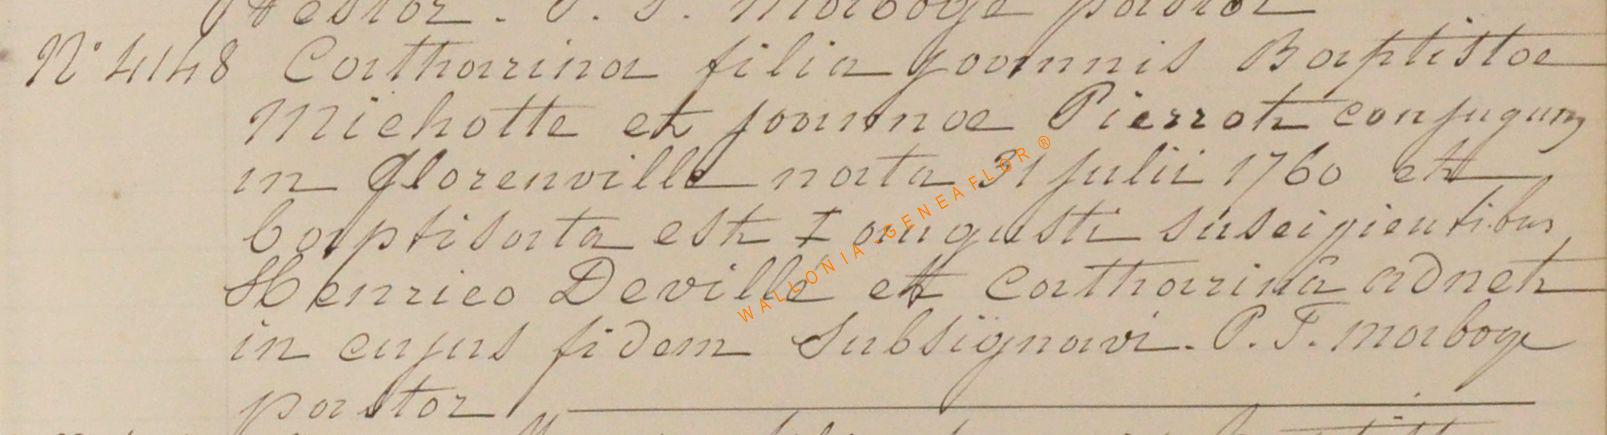 pastor. P. F. Maboge pastor
N° 4148 Catharina filia Joannis Baptistae
Michotte et Joannae Pierrot conjugum
in Florenville nata 31 Julii 1760 et
baptisata est I augusti suscipientibus
Henrico Deville et Catharina adnet
in cujus fidem subsignavi. P. F. maboge
pastor
WALLONIA IGENEAFLOR ®